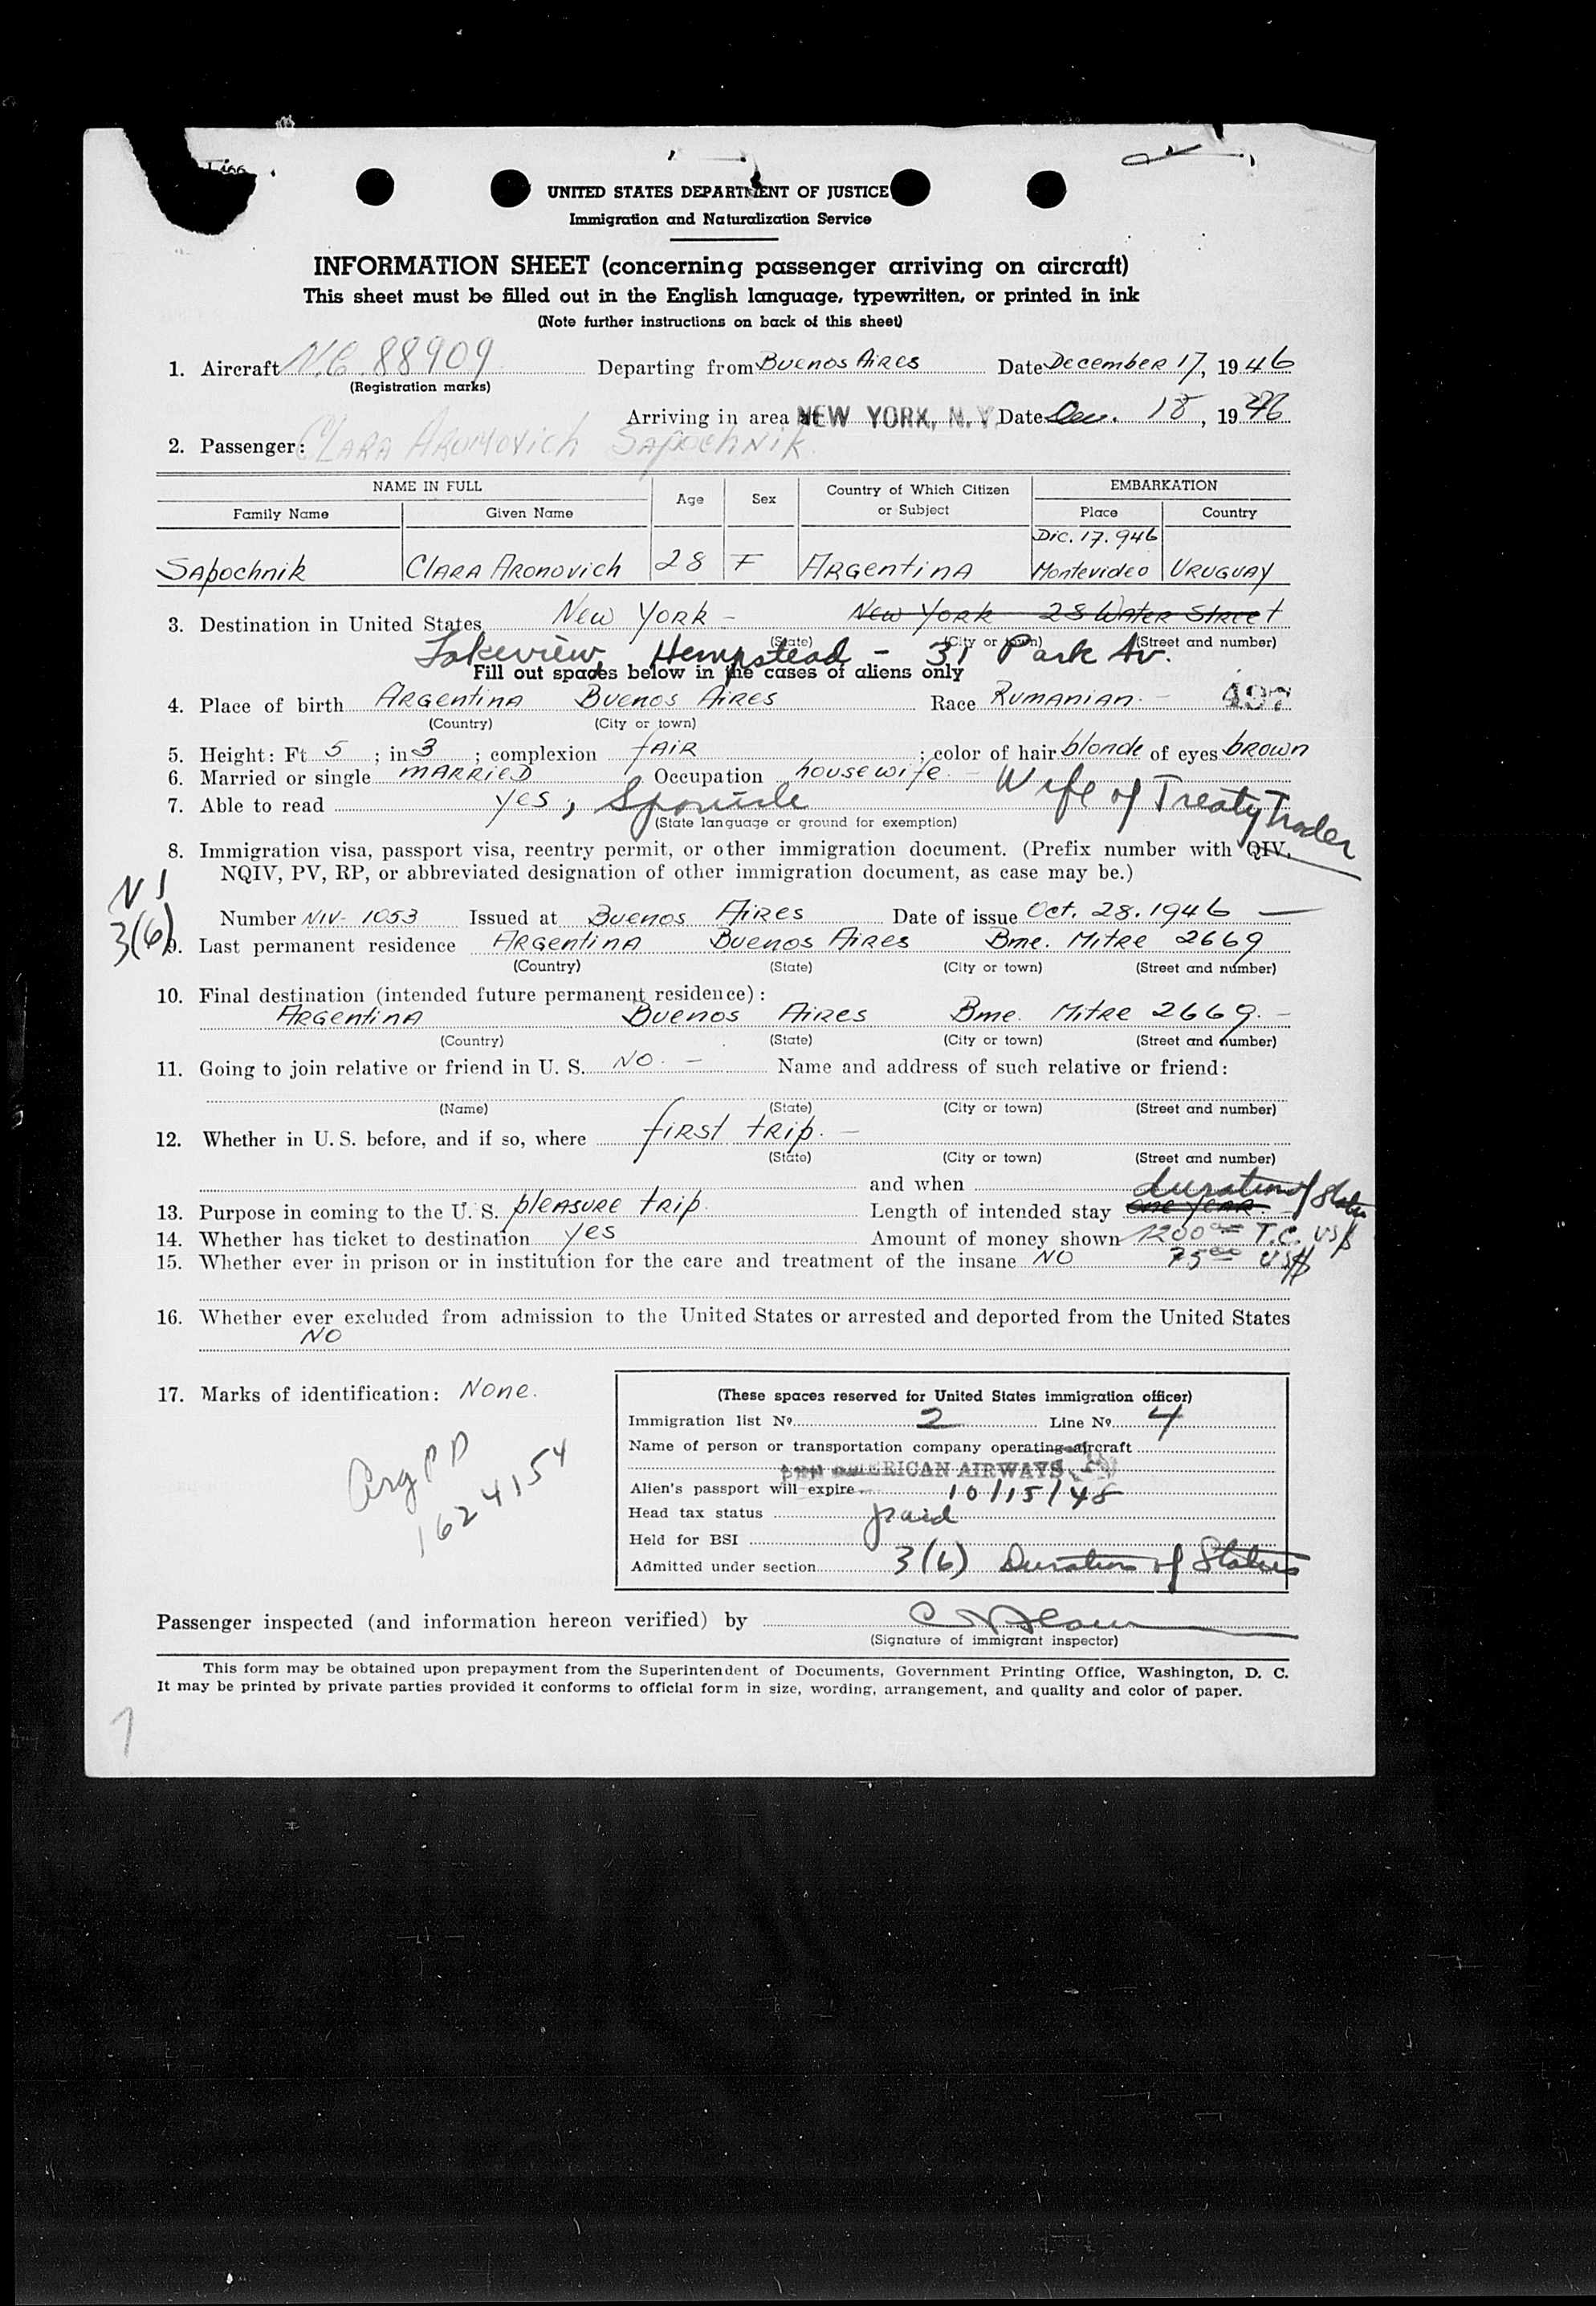 UNITED STATES DEPARTMENT OF JUSTICE
Immigration and Naturalization Service
INFORMATION SHEET (concerning passenger arriving on aircraft)
This sheet must be filled out in the English language, typewritten, or printed in ink
(Note further instructions on back of this sheet)
1. Aircraft N.C. 88909 Departing from Buenos Aires Date December 17, 1946
(Registration marks)
Arriving in area at NEW YORK, N.Y. Date Dec. 18, 1946
2. Passenger: CLARA ARONOVICH SAPOCHNIK.
NAME IN FULL Age Sex Country of Which Citizen or Subject EMBARKATION
Family Name Given Name Place Country
Dic. 17. 946
Sapochnik CLARA ARONOVICH 28 F ARGENTINA Montevideo URUGUAY
3. Destination in United States New York - New York 28 Water Street
(State) (City or town) (Street and number)
Lakeview Hempstead - 31 Park Av.
Fill out spaces below in the cases of aliens only
4. Place of birth ARGENTINA Buenos Aires Race Rumanian. - 497
(Country) (City or town)
5. Height: Ft 5; in 3; complexion fair; color of hair blonde of eyes brown
6. Married or single MARRIED Occupation housewife. - Wife of Treaty Trader
7. Able to read yes,
(State language or ground for exemption)
8. Immigration visa, passport visa, reentry permit, or other immigration document. (Prefix number with QIV,
NQIV, PV, RP, or abbreviated designation of other immigration document, as case may be.)
3(6)
Number NIV- 1053 Issued at Buenos Aires Date of issue Oct. 28. 1946 —
9. Last permanent residence ARGENTINA Buenos Aires Bme. Mitre 2669
(Country) (State) (City or town) (Street and number)
10. Final destination (intended future permanent residence):
ARGENTINA Buenos Aires Bme. Mitre 2669. -
(Country) (State) (City or town) (Street and number)
11. Going to join relative or friend in U. S. NO. - Name and address of such relative or friend:
(Name) (State) (City or town) (Street and number)
12. Whether in U. S. before, and if so, where first trip. -
(State) (City or town) (Street and number)
and when
duration of Status
13. Purpose in coming to the U. S. pleasure trip. Length of intended stay one year. -
14. Whether has ticket to destination yes Amount of money shown 1200 00 T.C. US$
15. Whether ever in prison or in institution for the care and treatment of the insane NO 75 00 US$
16. Whether ever excluded from admission to the United States or arrested and deported from the United States
NO
17. Marks of identification: None.
Arg PP
1624154
(These spaces reserved for United States immigration officer)
Immigration list No. 2 Line No. 4
Name of person or transportation company operating aircraft
PAN AMERICAN AIRWAYS
Alien's passport will expire 10/15/48
Head tax status paid
Held for BSI
Admitted under section 3(6) Duration of Status
Passenger inspected (and information hereon verified) by
(Signature of immigrant inspector)
This form may be obtained upon prepayment from the Superintendent of Documents, Government Printing Office, Washington, D. C.
It may be printed by private parties provided it conforms to official form in size, wording, arrangement, and quality and color of paper.